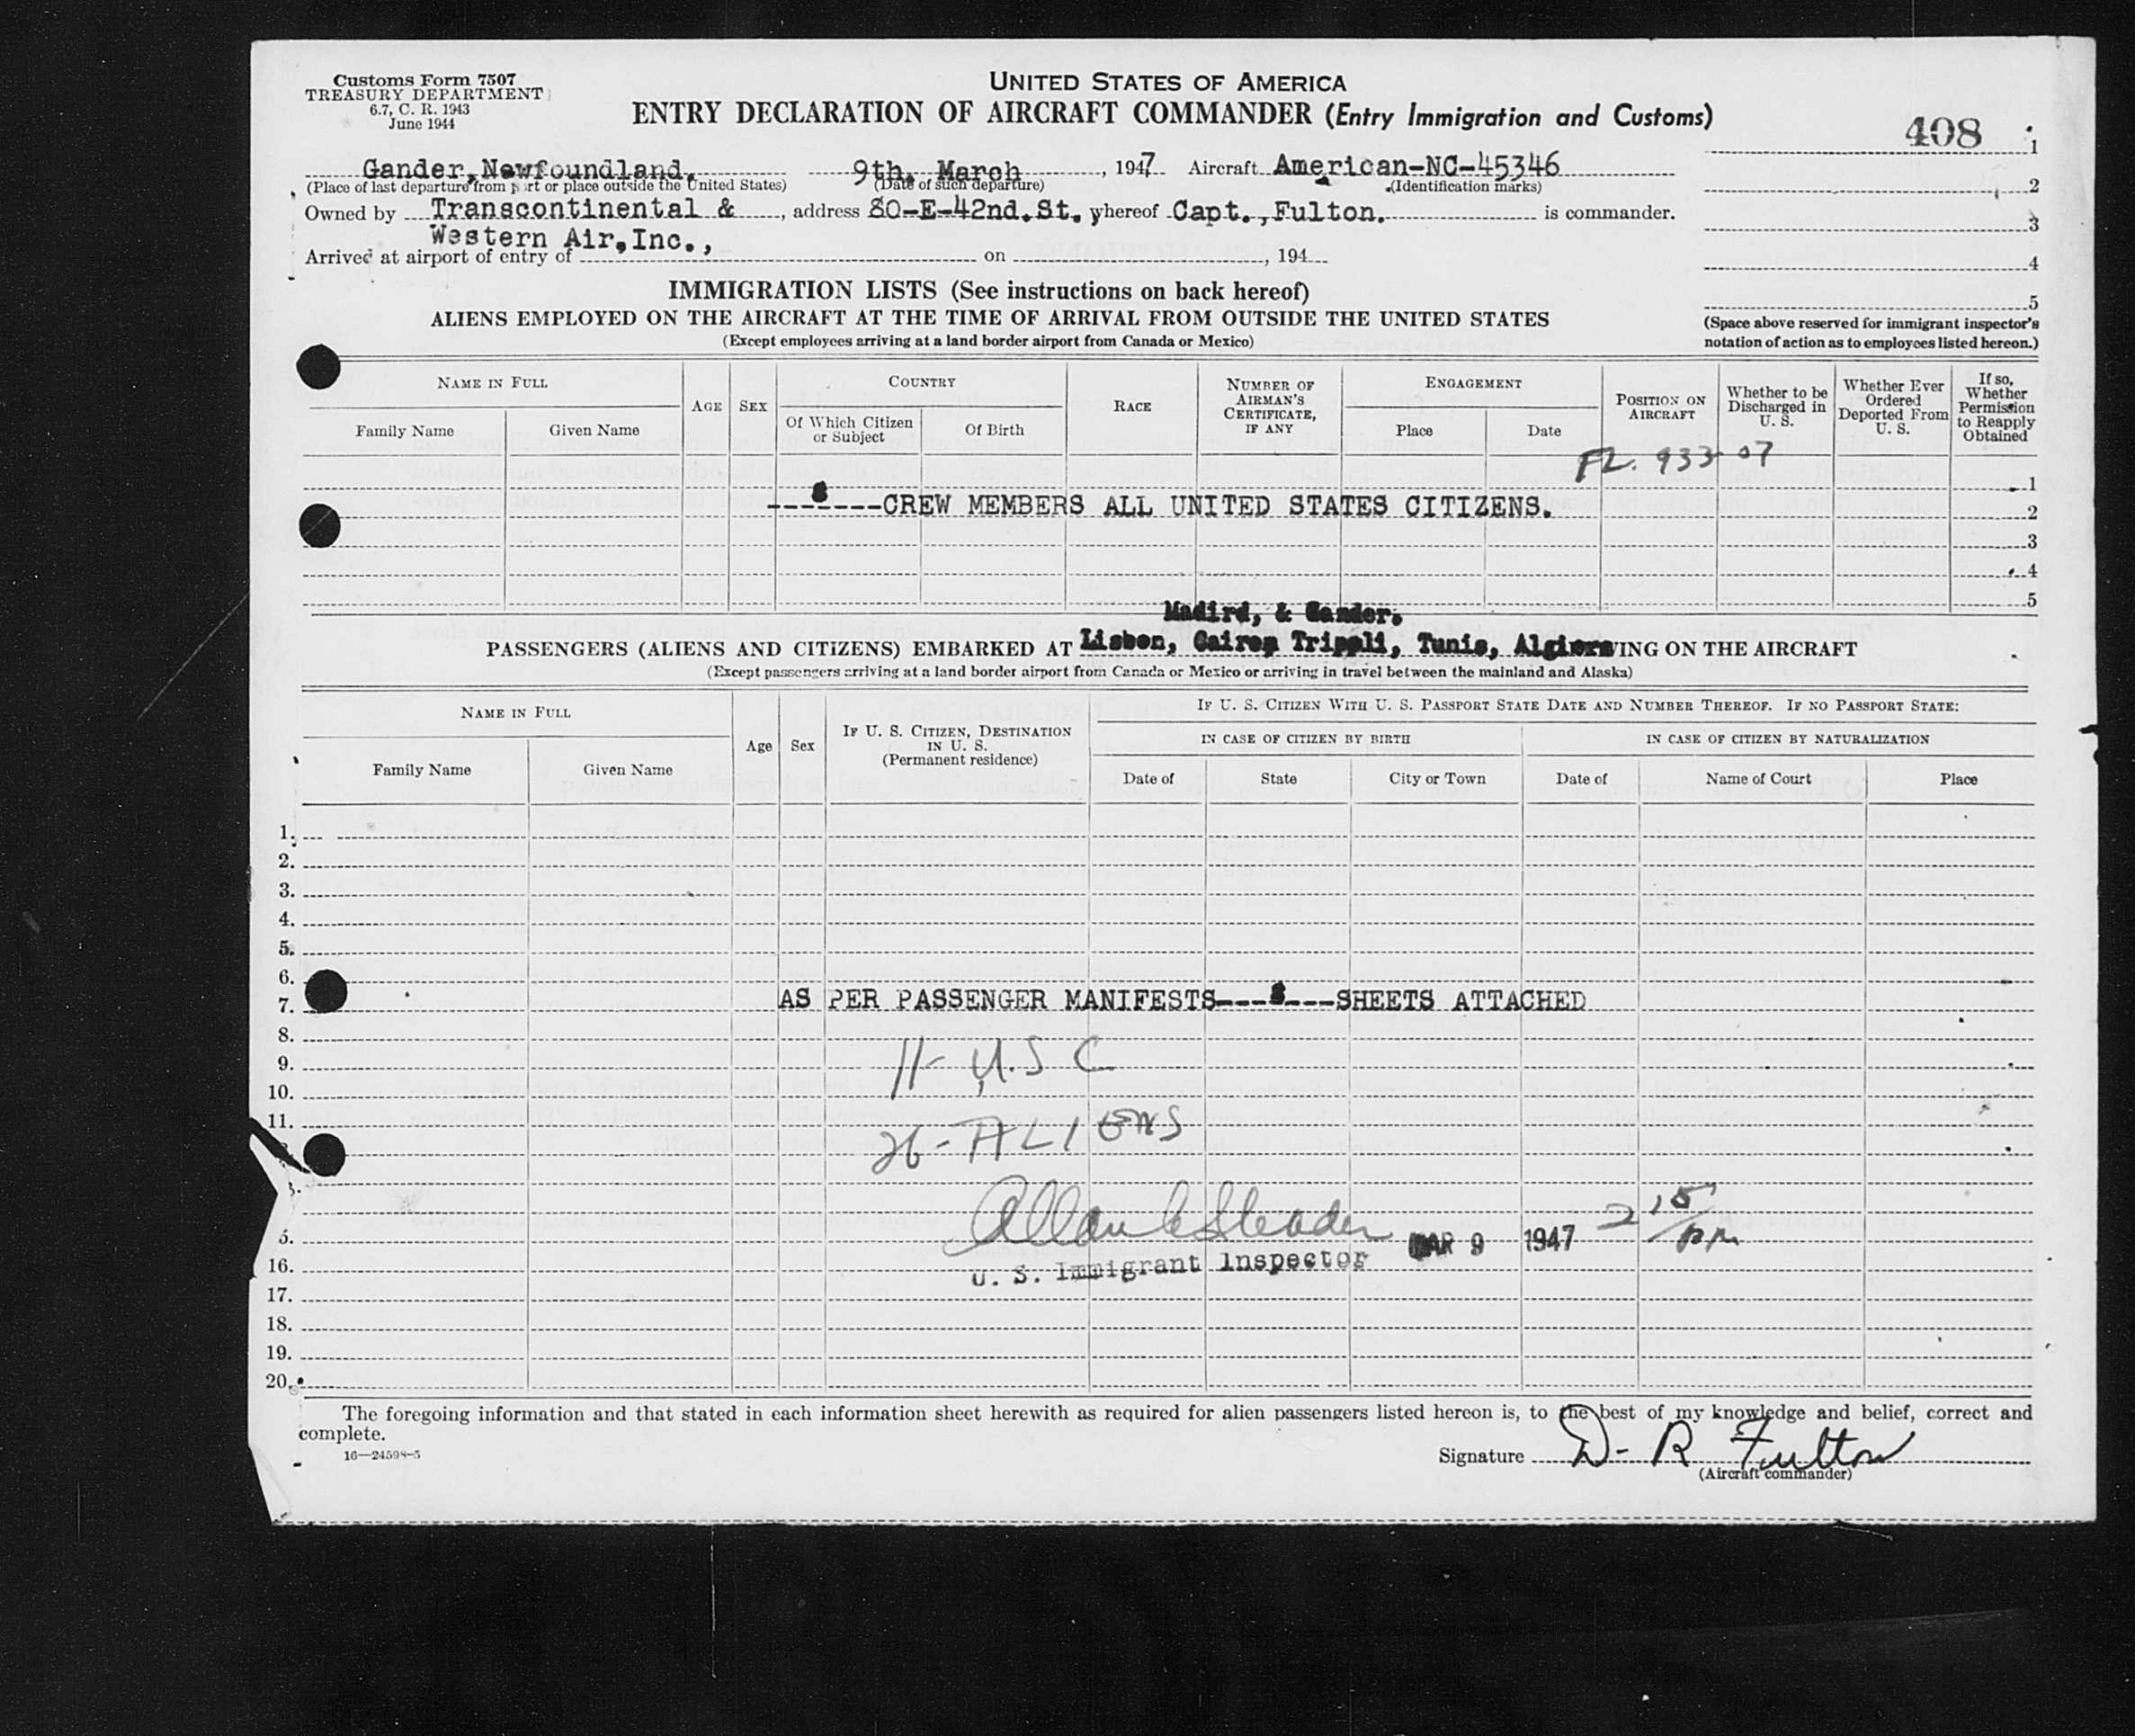 Customs Form 7507
TREASURY DEPARTMENT
6.7, C. R. 1943
June 1944
UNITED STATES OF AMERICA
ENTRY DECLARATION OF AIRCRAFT COMMANDER (Entry Immigration and Customs)
408
1
Gander, Newfoundland. 9th. March, 1947 Aircraft American-NC-45346
(Place of last departure from port or place outside the United States) (Date of such departure) (Identification marks)
2
Owned by Transcontinental & , address 80-E-42nd.St. whereof Capt., Fulton. is commander.
3
Western Air, Inc.,
Arrived at airport of entry of on , 194
4
IMMIGRATION LISTS (See instructions on back hereof)
5
ALIENS EMPLOYED ON THE AIRCRAFT AT THE TIME OF ARRIVAL FROM OUTSIDE THE UNITED STATES
(Except employees arriving at a land border airport from Canada or Mexico)
(Space above reserved for immigrant inspector's
notation of action as to employees listed hereon.)
NAME IN FULL
Family Name
Given Name
AGE
SEX
COUNTRY
Of Which Citizen
or Subject
Of Birth
RACE
NUMBER OF
AIRMAN'S
CERTIFICATE,
IF ANY
ENGAGEMENT
Place
Date
POSITION ON
AIRCRAFT
Whether to be
Discharged in
U. S.
Whether Ever
Ordered
Deported From
U. S.
If so,
Whether
Permission
to Reapply
Obtained
FL. 933-07
1
----CREW MEMBERS ALL UNITED STATES CITIZENS.
2
3
4
5
Madird, & Gander.
PASSENGERS (ALIENS AND CITIZENS) EMBARKED AT Lisbon, Cairo, Tripoli, Tunis, Algiers ING ON THE AIRCRAFT
(Except passengers arriving at a land border airport from Canada or Mexico or arriving in travel between the mainland and Alaska)
NAME IN FULL
Family Name
Given Name
Age
Sex
IF U. S. CITIZEN, DESTINATION
IN U. S.
(Permanent residence)
IF U. S. CITIZEN WITH U. S. PASSPORT STATE DATE AND NUMBER THEREOF. IF NO PASSPORT STATE:
IN CASE OF CITIZEN BY BIRTH
IN CASE OF CITIZEN BY NATURALIZATION
Date of
State
City or Town
Date of
Name of Court
Place
1.
2.
3.
4.
5.
6.
7. AS PER PASSENGER MANIFESTS--- ---SHEETS ATTACHED
8.
9. 11- U.S C
10.
11.
26-ALIENS
3.
5. MAR 9 1947 2 15/pm
16. U. S. Immigrant Inspector
17.
18.
19.
20.
The foregoing information and that stated in each information sheet herewith as required for alien passengers listed hereon is, to the best of my knowledge and belief, correct and
complete.
16—24598-5
Signature D- R Fulton
(Aircraft commander)